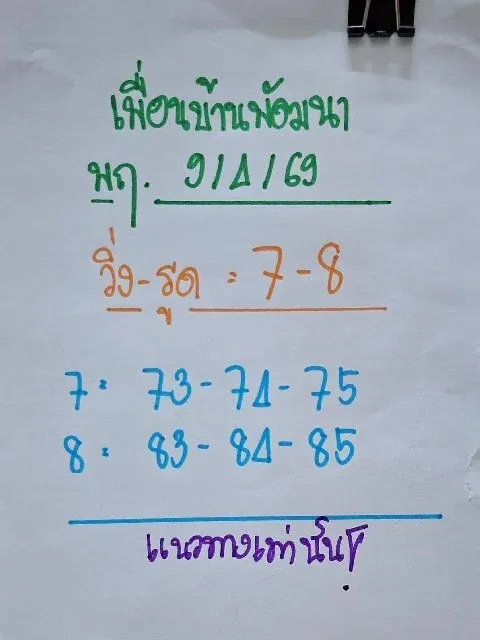 เพื่อนบ้านพ้อมนา
พฤ. 9/4/69
วิ่ง-รูด = 7-8
7: 73-74-75
8: 83-84-85
แนวทางเท่านั้น